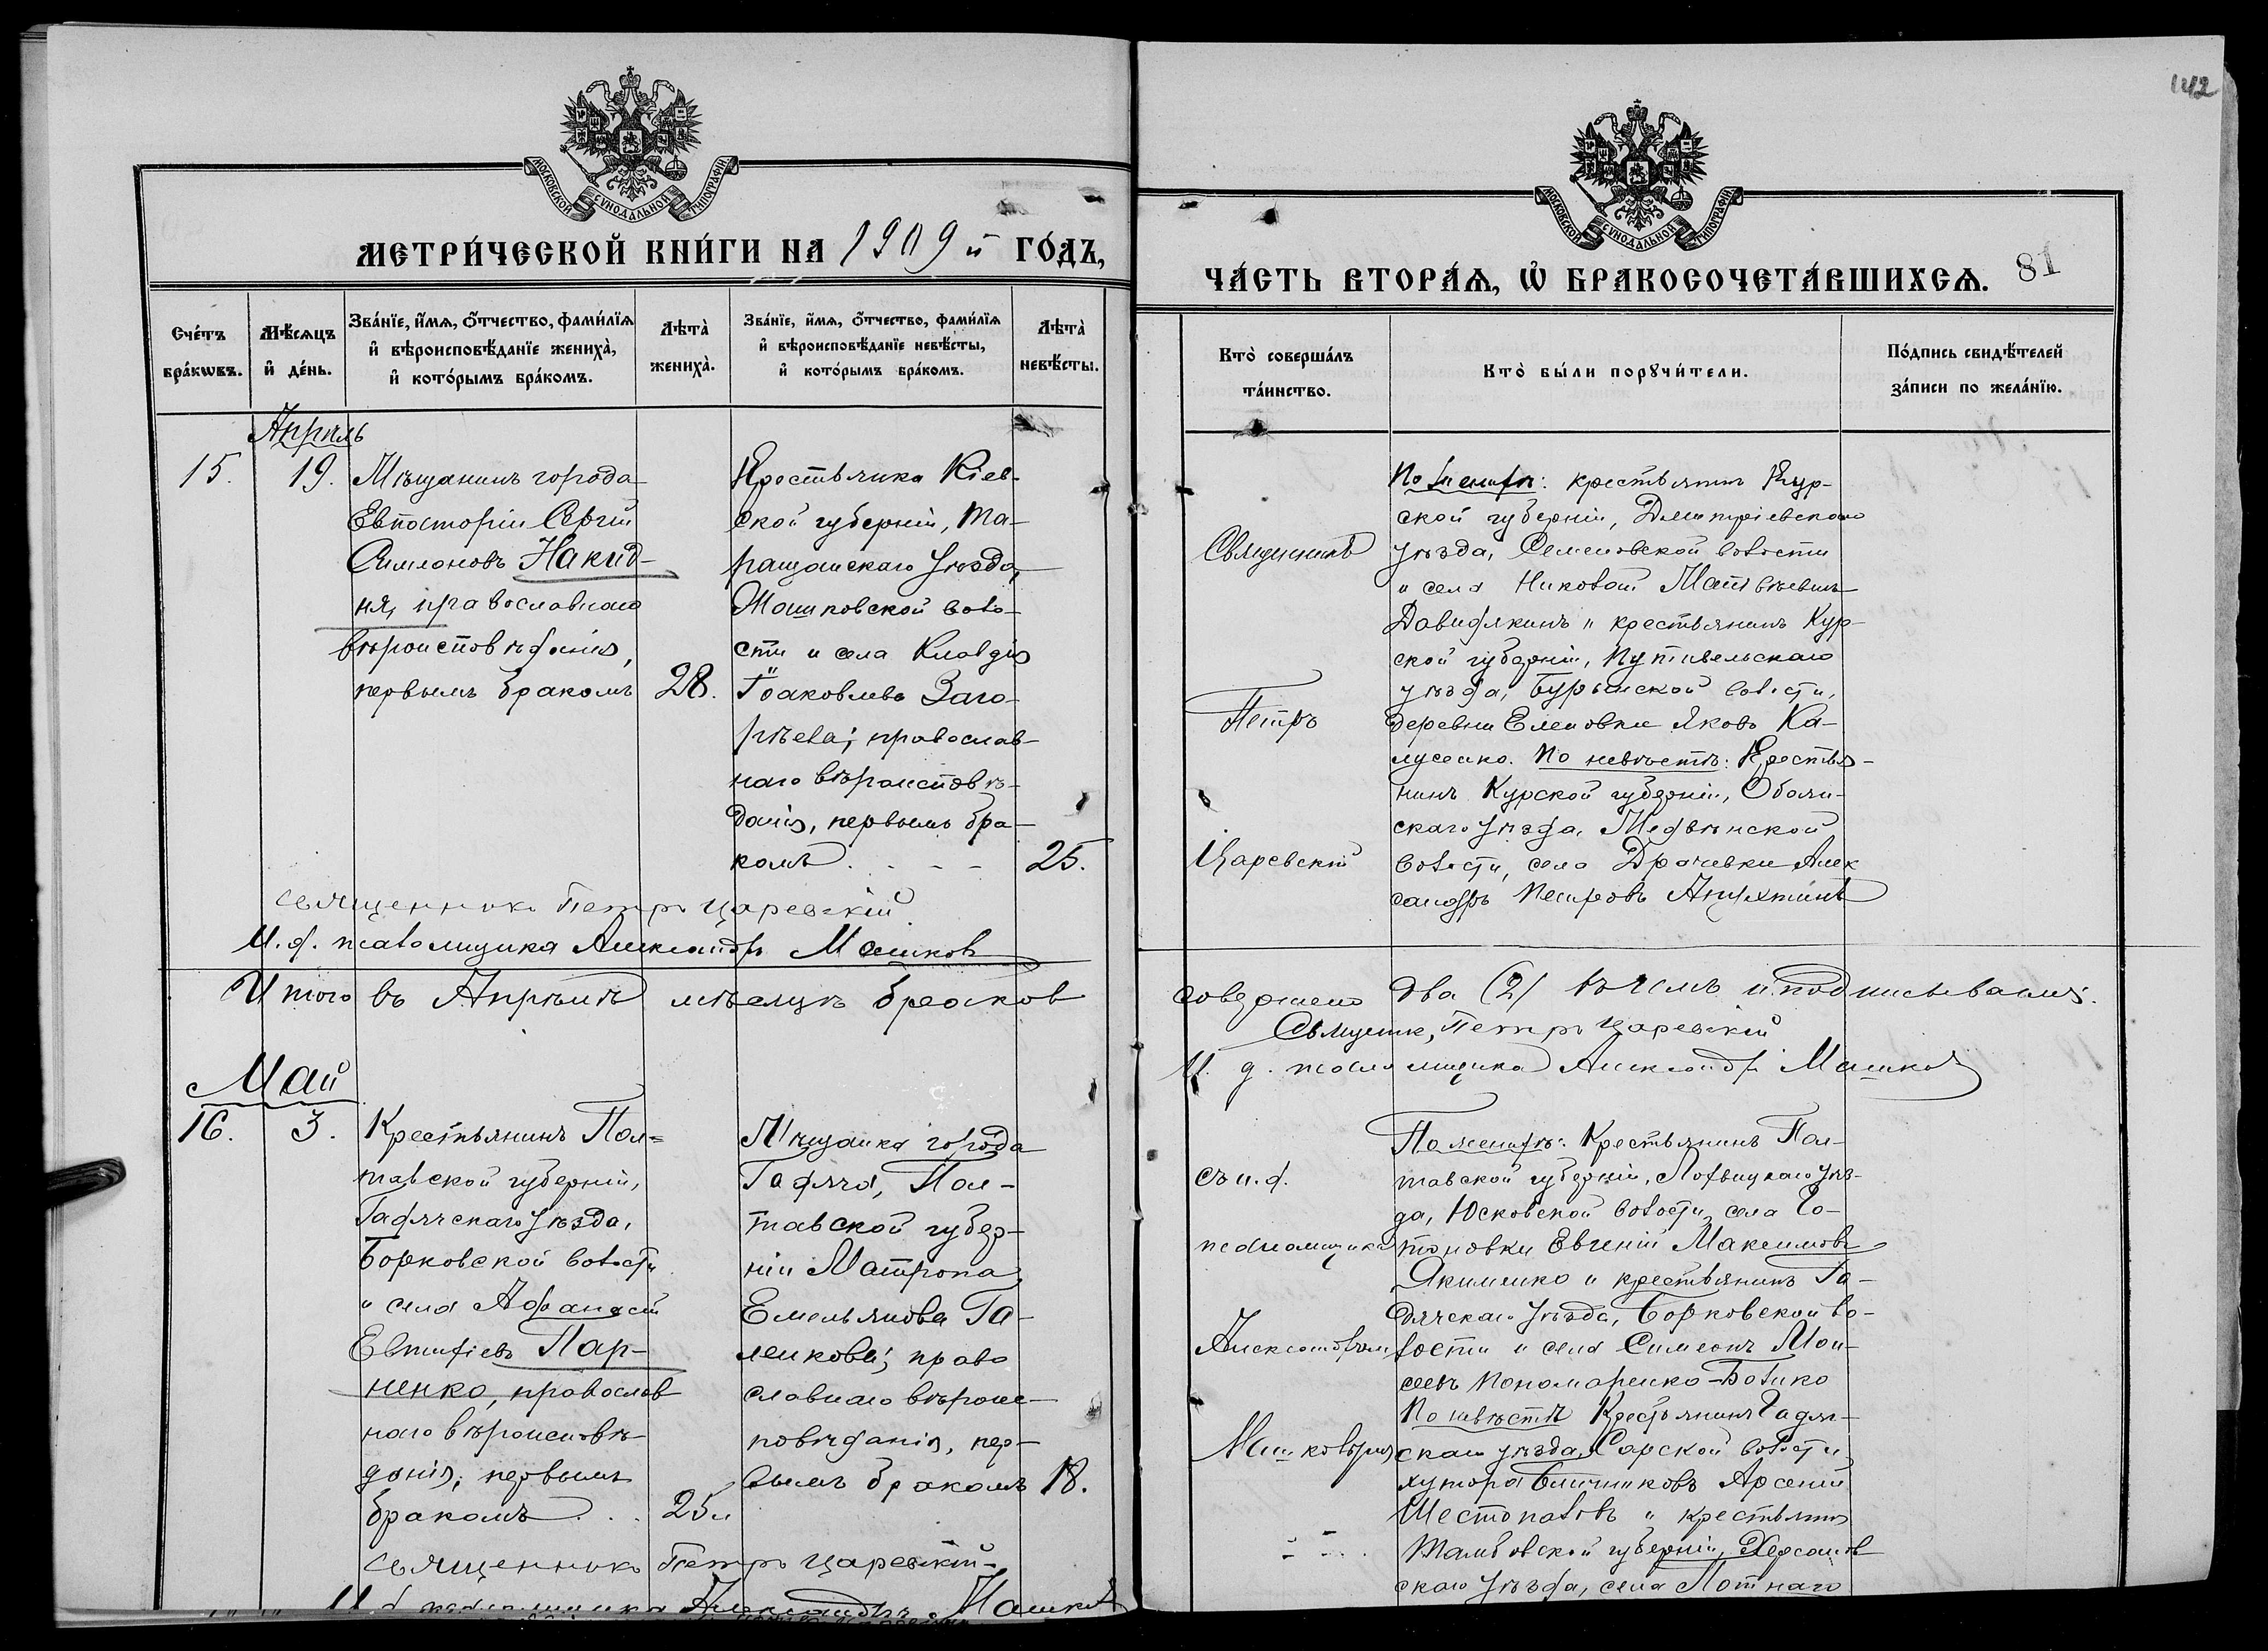 142
МОСКОВСКОЙ СУНОДАЛЬНОЙ ТИПОГРАФІИ
МЕТРИ́ЧЕСКОЙ КНИ́ГИ НА 1909 й ГО́ДЪ,
Сче́тъ бра́кѡвъ.
Мѣ́сяцъ и҆ де́нь.
Зва́нїе, и҆́мѧ, ѻ҆́тчество, фами́лїѧ
и҆ вѣроисповѣ́данїе жениха̀,
и҆ кото́рымъ бра́комъ.
Лѣта̀
жениха̀.
Зва́нїе, и҆́мѧ, ѻ҆́тчество, фами́лїѧ
и҆ вѣроисповѣ́данїе невѣ́сты,
и҆ кото́рымъ бра́комъ.
Лѣта̀
невѣ́сты.
Апрѣль
15. 19.
Мѣщанинъ города
Евпаторіи Сергій
Симеоновъ Накид-
ня, православнаго
вѣроисповѣданія,
первымъ бракомъ 28.
Крестьянка Кіев-
ской губерніи, Та-
ращанскаго уѣзда,
воло-
сти и села Клавдія
Іоаковлева Заго-
рѣева; православ-
наго вѣроисповѣ-
данія, первымъ бра-
комъ . - - - 25.
священникъ Петръ Царевскій
И. д. псаломщика Александръ Машковъ
Итого въ Апрѣлѣ мѣсяцѣ браков
Май
16. 3.
Крестьянинъ Пол=
тавской губерніи,
Гадячскаго уѣзда,
Борковской волости
и села Афанасій
Евтихіевъ Пар-
ненко, православ
наго вѣроисповѣ-
данія, первымъ
бракомъ . . . 25.
Мѣщанка города
Гадяча, Пол-
тавской губер-
ніи Матрона
Емельянова Га-
ленкова; право
славнаго вѣроис-
повѣданія, пер-
вымъ бракомъ 18.
священникъ Петръ Царевскій
И д псаломщика Александръ Машков
МОСКОВСКОЙ СУНОДАЛЬНОЙ ТИПОГРАФІИ
ЧА́СТЬ ВТОРА́Ѧ, Ѽ БРАКОСОЧЕТА́ВШИХСѦ.
81
Кто̀ соверша́лъ
та́инство.
Кто̀ бы́ли порꙋчи́тели.
По́дпись свидѣ́телей
за́писи по жела́нїю.
Священникъ
Петръ
Царевскій
По женихѣ: крестьянинъ Кур-
ской губерніи, Дмитріевскаго
уѣзда, Семеновской волости
и села Николай Матвѣевичъ
Давидякинъ и крестьянинъ Кур-
ской губерніи, Путивельскаго
уѣзда, Бурынской волости,
деревни Еленовки Яковъ Ка-
нусенко. По невѣстѣ: Крестья-
нинъ Курской губерніи, Обоян-
скаго уѣзда, Медвѣнской
волости, села Драчевки Алек
сандръ Петровъ Апухтинъ
совершено два (2) въ чемъ и подписываемся.
Священник, Петръ Царевскій
И. д. псаломщика Александръ Машковъ
съ и. д.
псаломщика
Александромъ
Машковымъ
По женихѣ: Крестьянинъ Пол-
тавской губерніи, Лохвицкаго уѣз-
да, Юсковской волости, села Го-
товки Евгеній Максимовъ
Якименко и крестьянинъ Га-
дячскаго уѣзда, Борковской во-
лости и села Симеонъ Мои-
сеевъ Пономаренко-Ботико
По невѣстѣ Крестьянинъ Гадяч-
скаго уѣзда, Сарской волости,
хутора Арсеній
Шестопаловъ и крестьянин
Тамбовской губерніи, Кирсанов
скаго уѣзда, села Лотнаго